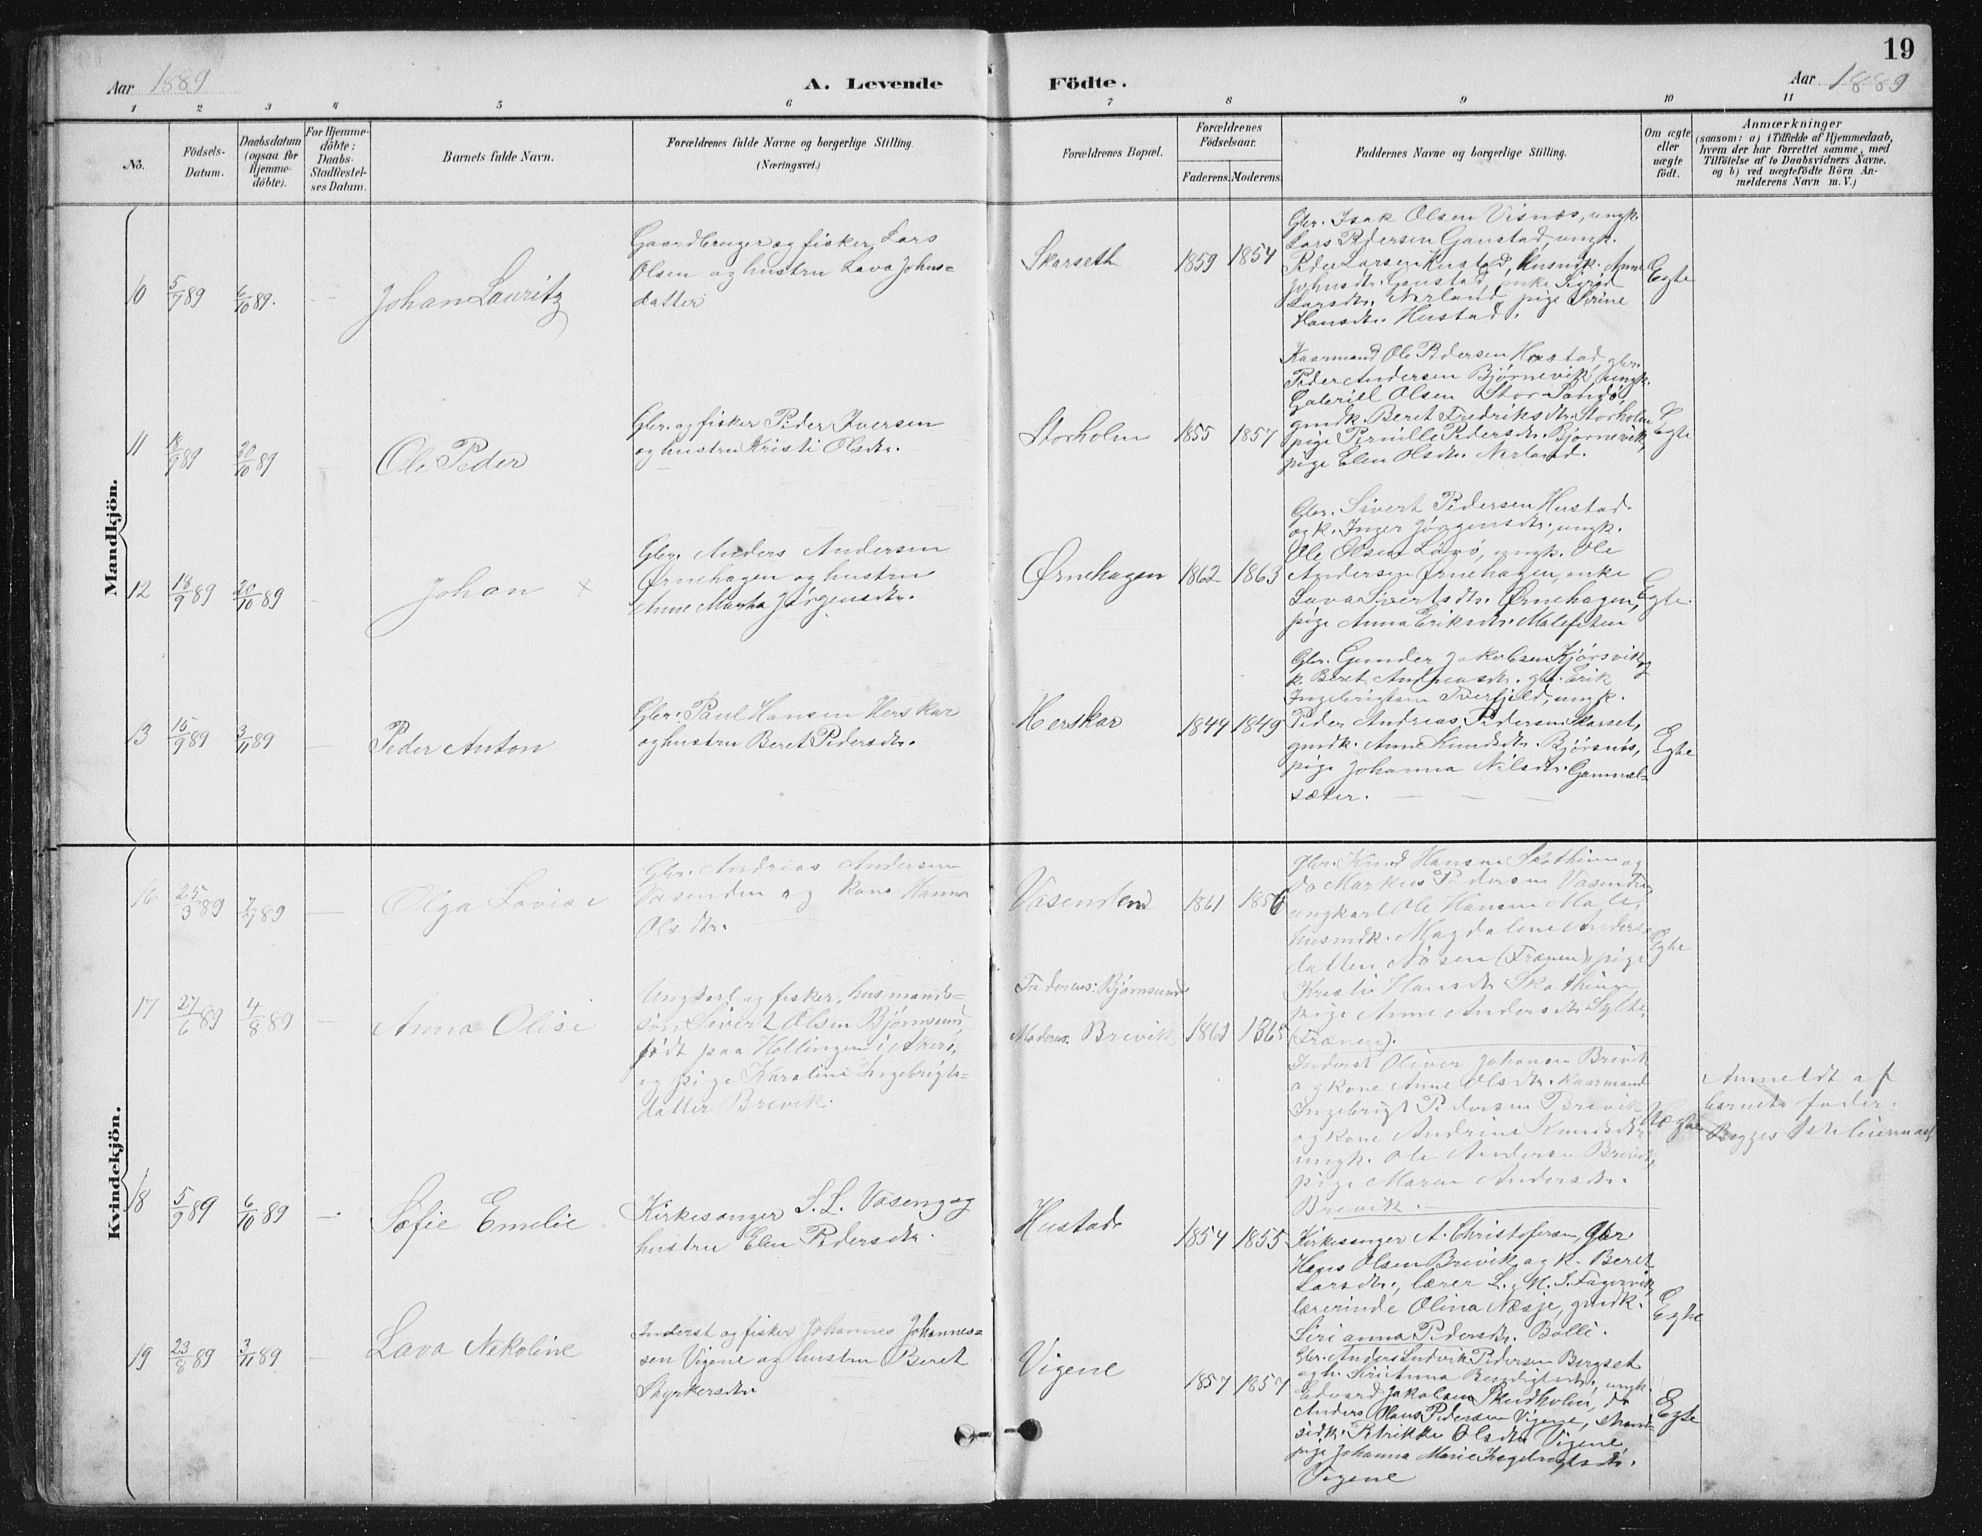 19
Aar 1889
A. Levende Födte.
Aar 1889
1 2 3 4 5 6 7 8 9 10 11
No.
Födsels-Datum.
Daabsdatum (ogsaa for Hjemmedöbte).
For Hjemmedöbte: Daabs-Stadfæstelses Datum.
Barnets fulde Navn.
Forældrenes fulde Navne og borgerlige Stilling. (Næringsvei.)
Forældrenes Bopæl.
Forældrenes Födselsaar.
Faderens. Moderens.
Faddernes Navne og borgerlige Stilling.
Om ægte eller uægte födt.
Anmærkninger
(saasom: a) i Tilfælde af Hjemmedaab,
hvem der har forrettet samme, med
Tilföielse af to Daabsvidners Navne,
og b) ved uægtefödte Börn Anmelderens Navn m. V.)
Mandkjön.
10
5/7 89
6/10 89.
Johan Lauritz
Gaardbruger og fisker Lars
Olsen og hustru Lava Johns=
datter
Skarseth
1859
1854
Gbr. Isak Olsen Visnes, ungk.
Lars Pedersen Gaustad, ungk.
Peder Larsen Hustad, husmdk. Anne
Johnsdtr. Gaustad, enke Sigrid
Larsdtr. Nerland, pige Serine
Hansdtr. Hustad.
Egte
11
18/9 89
20/10 89
Ole Peder
Gbr. og fisker Peder Iversen
og hustru Kristi Olsdtr.
Storholm
1855
1857
Kaarmand Ole Pedersen Hustad, gbr.
Peder Andersen Bjørnevik, ungk.
Gabriel Olsen Stor Sandø,
gmdk. Beret Fredriksdtr. Storholm
pige Pernille Pedersdtr. Bjørnevik,
pige Elen Olsdtr. Nerland.
Egte
12
18/9 89
20/10 89
Johan ×
Gbr. Anders Andersen
Ørnehagen og hustru
Anne Marta Jørgensdtr.
Ørnehagen
1862
1863
Gbr. Sivert Pedersen Hustad
og k. Inger Jørgensdtr., ungk.
Ole Olsen Løvø, ungk. Ole
Andersen Ørnehagen, enke
Lava Sivertsdtr. Ørnehagen,
pige Anna Eriksdtr. Malefeten
Egte.
13
15/9 89
3/11 89
Peder Anton
Gbr. Paul Hansen Herskar
og hustru Beret Pedersdtr.
Herskar
1844
1849
Gbr. Gunder Jakobsen Kjørsvik og
k. Beret Andreasdtr. gbr. Erik
Ingebrigtsen Tverfjeld, ungk.
Peder Andreas Pedersen Skarset,
gmdk. Anne Knudsdtr. Bjørsnøs,
pige Johanna Nilsdtr. Gammel-
sæter.
Egte
Kvindekjön.
16
25/3 89
7/7 89
Olga Lovise
Gbr. Andreas Andersen
Vasenden og kone Hanna
Olsdtr.
Vasenden
1861
1856
Gbr. Knud Hansen Skothein og
do Markus Pedersen Vasenden,
ungkarl Ole Hansen Male,
husmdk. Magdalene Anders=
datter Nøsen (Frænen), pige
Kristi Hansdtr. Skothein,
pige Anne Andersdtr. Sylte,
(Frænen).
Egte
17
27/6 89
4/8 89
Anna Olise
Ungkarl og fisker, husmands=
søn Sivert Olsen Bjørnsund,
født paa Hollingen i Akerø,
og pige Karoline Ingebrigts=
datter Brevik.
Faderens: Bjørnsund
Moderens. Brevik
1863
1865
Inderst Oliver Johansen Brevik
og kone Anne Olsdtr. Kaarmand
Ingebrigt Pedersen Brevik
og kone Andrine Knudsdtr.
ungk. Ole Andersen Brevik,
pige Maren Andersdtr.
Brevik.
Uægte
Anmeldt af
barnets fader.
Begges 1ste leiermaal
18
5/9 89
6/10 89
Sofie Emelie
Kirkesanger S. L. Vaseng og
hustru Elen Pedersdtr.
Hustad
1854
1855
Kirkesanger A. Christofersen, Gbr
Hans Olsen Brevik og k. Beret
Larsdtr., lærer L. M. S. Fagervik,
lærerinde Olina Næsje, gmdk.
Siri anna Pedersdtr. Bolli.
Egte
19
23/8 89
3/11 89
Lava Nekoline
Inderst og fisker Johannes Johannes=
sen Vigene og hustru Beret
Styrkersdtr
Vigene
1857
1857
Gbr. Anders Ludvik Pedersen Bergset
og h. Siri Anna Bendigtsdtr., ungk.
Edvard Jakobsen Skudholm, do
Anders Hans Pedersen Vigene, strand-
sidk. Petrikke Olsdtr. Vigene,
pige Johanna Marie Ingebrigtsdtr.
Vigene
Egte